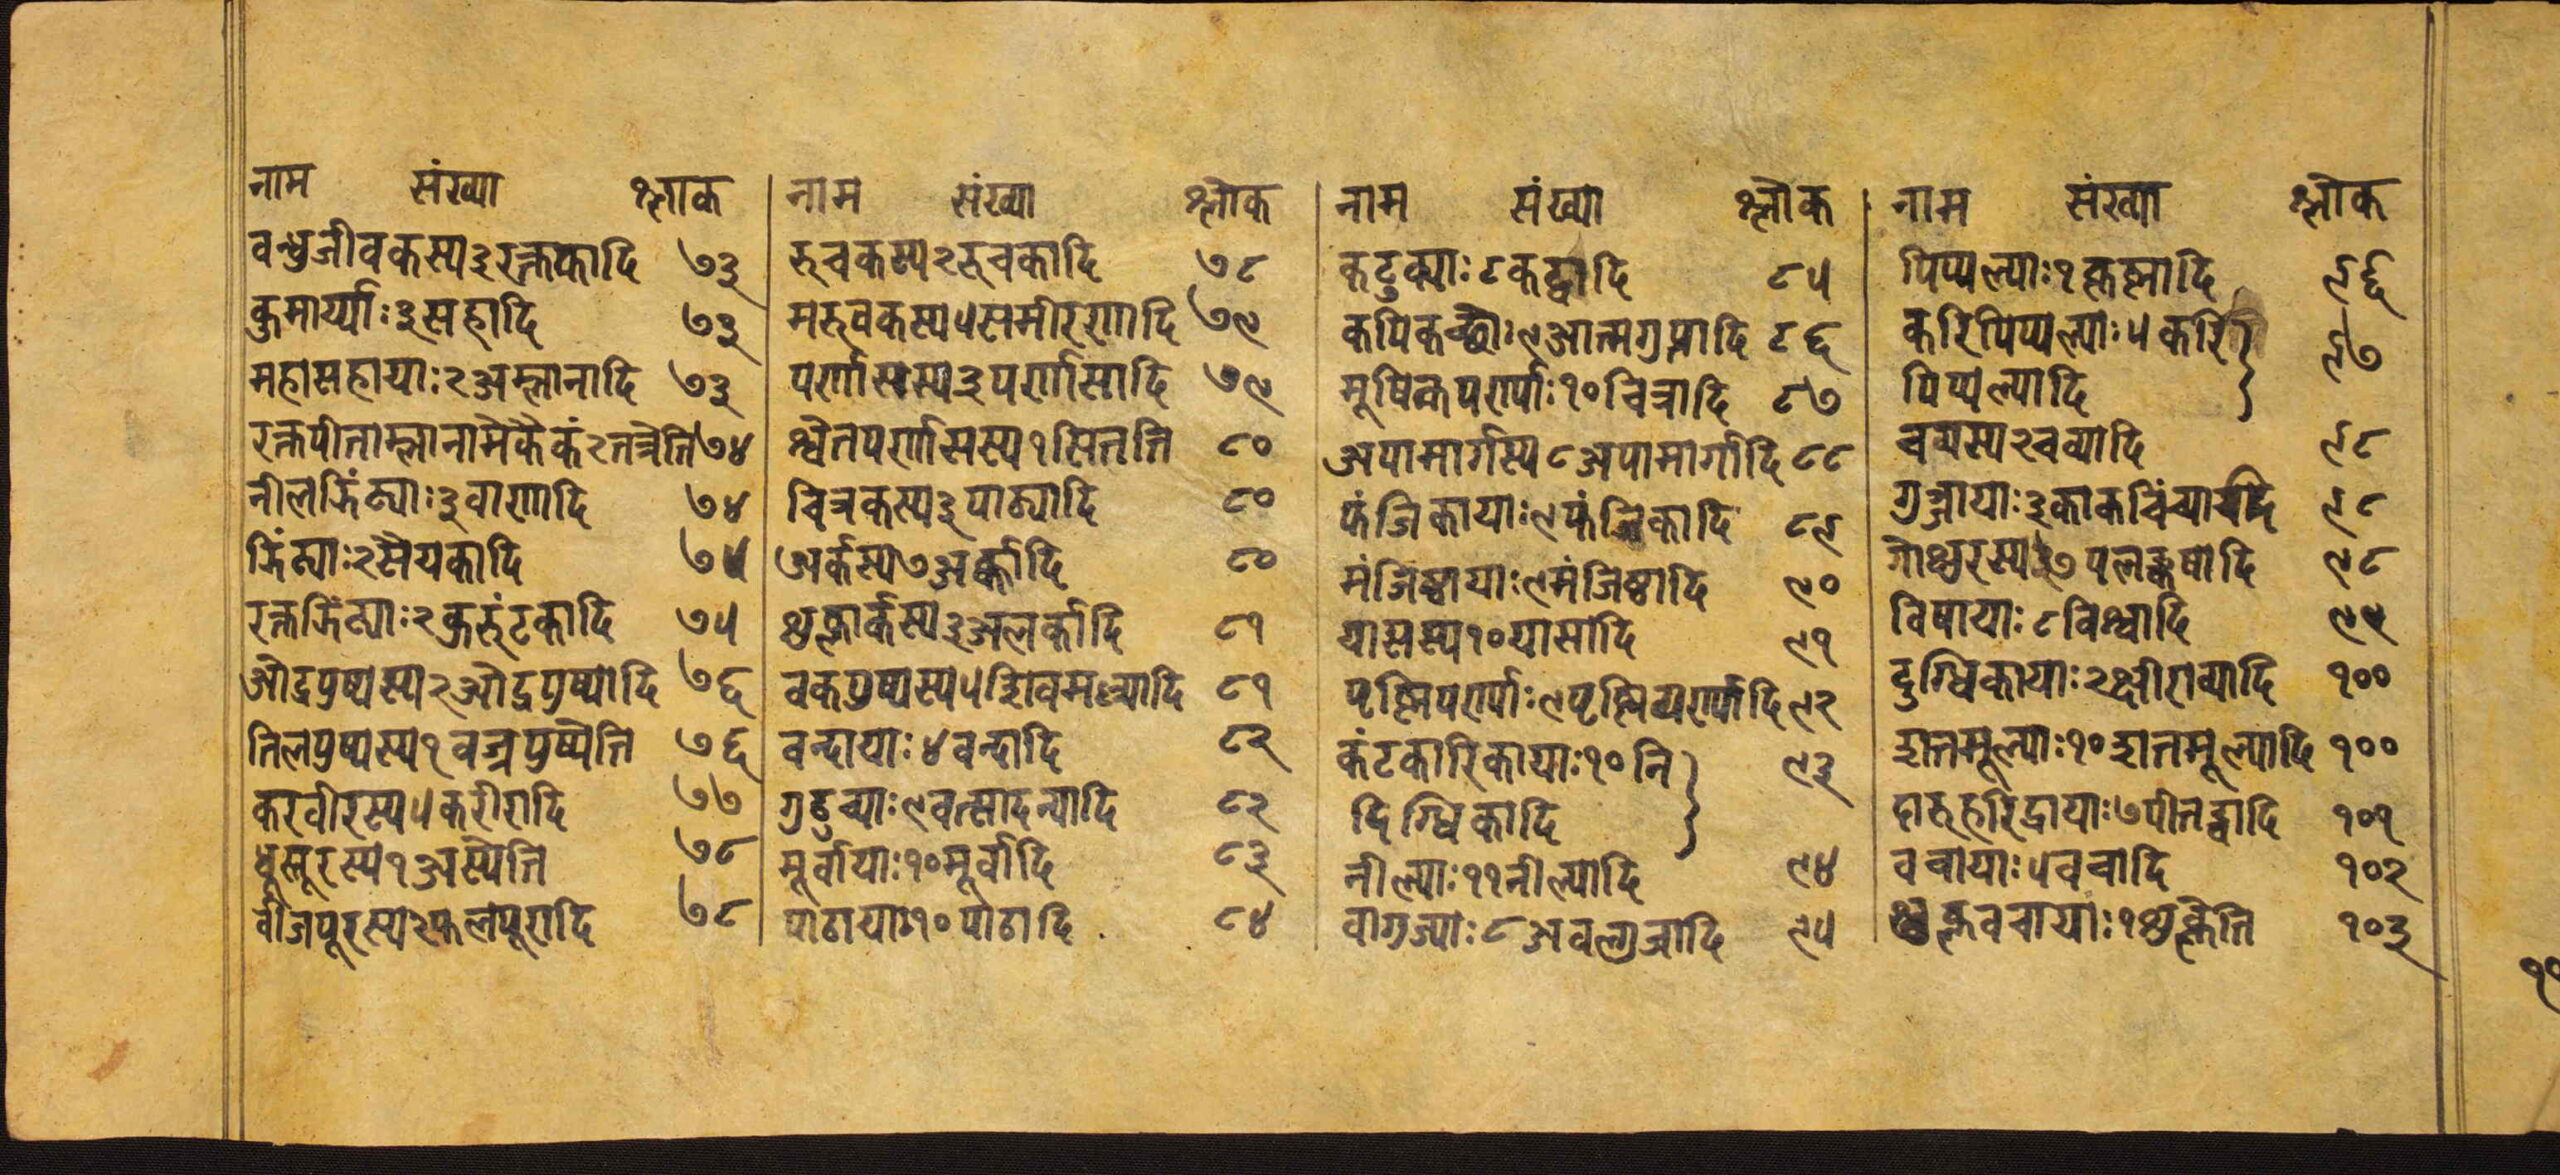 नाम संख्या श्लोक
वन्धुजीवकस्य ३ रक्तकादि ७३
कुमार्य्याः ३ सहादि ७३
महासहायाः २ अम्लानादि ७३
रक्तपीताम्लानामेकैकं २ तत्रेति ७४
नीलझिंट्याः ३ वाणादि ७४
झिंट्याः २ सैयकादि ७५
रक्तझिंट्याः २ कुरुंटकादि ७५
ओद्रपुष्पस्य २ ओद्रपुष्पादि ७६
तिलपुष्पस्य १ वज्रपुष्पेति ७६
करवीरस्य ५ करीरादि ७७
धूस्तूरस्य १ अस्येति ७८
वीजपूरस्य २ फलपूरादि ७८
नाम संख्या श्लोक
रुचकस्य २ रुचकादि ७८
मरुवकस्य ५ समीरणादि ७९
पर्णासस्य ३ पर्णासादि ७९
श्वेतपर्णासस्य १ सितेति ८०
चित्रकस्य ३ पाठ्यादि ८०
अर्कस्य ७ अर्कादि ८०
शुक्लार्कस्य ३ अलर्कादि ८१
वकपुष्पस्य ५ शिवमल्यादि ८१
वन्दायाः ४ वन्दादि ८२
गुडुच्याः ९ वत्सादन्यादि ८२
मूर्वायाः १० मूर्वादि ८३
पाठायाः १० पाठादि ८४
नाम संख्या श्लोक
कटुक्याः ८ कट्वादि ८५
कपिकच्छोः ९ आत्मगुप्तादि ८६
मूषिकपर्ण्याः १० चित्रादि ८७
अपामार्गस्य ८ अपामार्गादि ८८
फंजिकायाः ९ फंजिकादि ८९
मंजिष्ठायाः ९ मंजिष्ठादि ९०
यासस्य १० यासादि ९१
पृष्णिपर्ण्याः ९ पृष्णिपर्ण्यादि ९२
कंटकारिकायाः १० नि ९३
दिग्धिकादि
नील्याः ११ नील्यादि ९४
वागुज्याः ८ अवल्गुजादि ९५
नाम संख्या श्लोक
पिप्पल्याः १ कृष्णादि ९६
करिपिप्पल्याः ५ करि ९७
पिप्पल्यादि
चव्यस्य २ चव्यादि ९८
गुञ्जायाः ३ काकचिंचादि ९८
गोक्षुरस्य ७ पलङ्कषादि ९८
विषायाः ८ विश्वादि ९९
दुग्धिकायाः २ क्षीराव्यादि १००
शतमूल्याः १० शतमूल्यादि १००
दारुहरिद्रायाः ७ पीतद्र्वादि १०१
वचायाः ५ वचादि १०२
शुक्लवचायाः १ शुक्लेति १०३